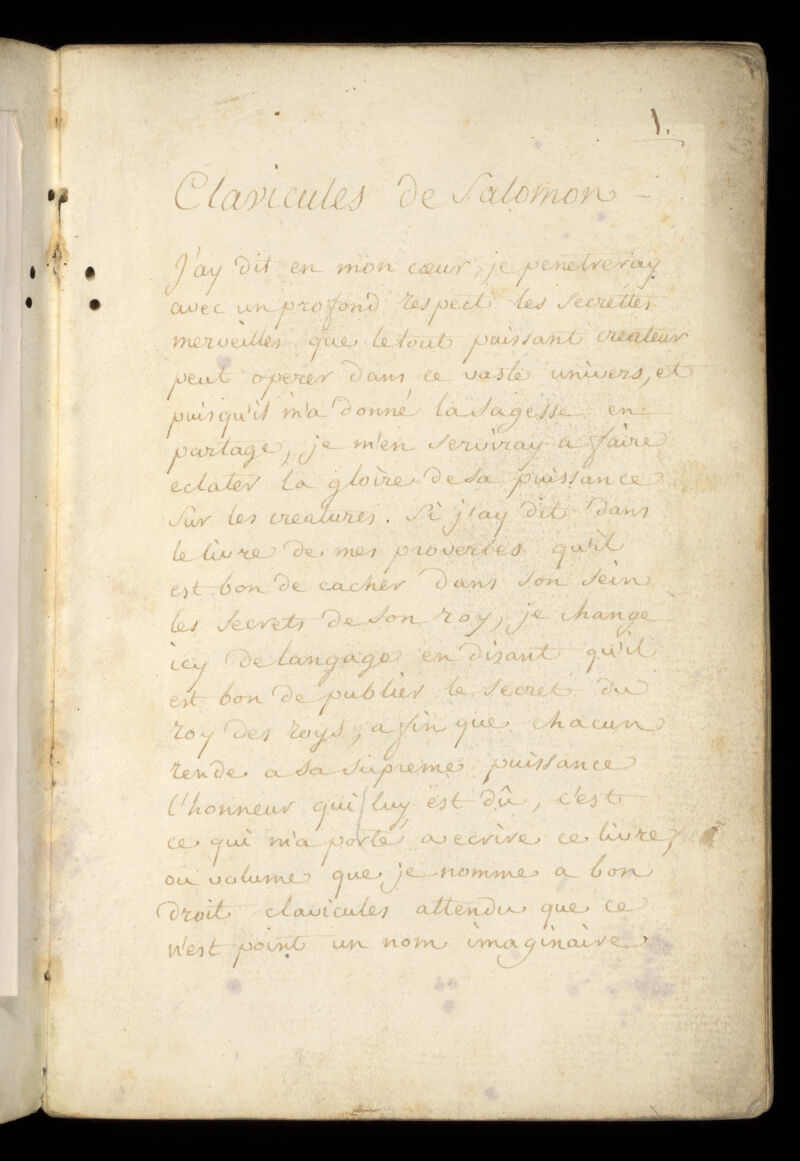 1.
Clavicules de Salomon
J'ay dit en mon cœur, je penetreray
avec un profond respect les secrettes
merveilles que le tout puissant createur
peut operer dans ce vaste univers, et
puis qu'il m'a donné la sagesse en
partage, je m'en serviray a faire
eclater la gloire de sa puissance
sur les creatures. Si j'ay dit dans
le livre de mes proverbes qu'il
est bon de cacher dans son sein
les secrets de son roy, je change
icy de langage en disant qu'il
est bon de publier le secret du
roy des roys, afin que chacun
rende a sa supreme puissance
l'honneur qui luy est dû, c'est
ce qui m'a porté a ecrire ce livre,
ou volume que je nomme a bon
droit clavicules attendu que ce
n'est point un nom imaginaire